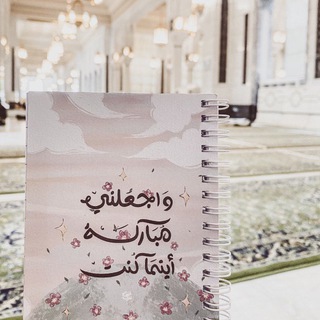 وَاجْعَلني
مُبَاركَة
أينمَا كنت